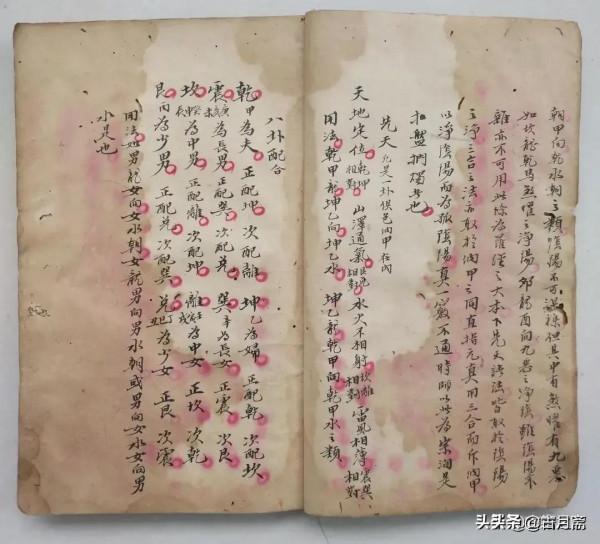 朝甲向乾水朝之類陰陽不可混雜但其中有煞曜有九星
如坎龍乾馬煞曜之淨陽
雖亦不可用此條為羅經之大本下先天諸法皆取於陰陽
之淨三合之法而取於納甲之間直指元真用三合而斥納甲
以淨陰陽而為孤陰陽真一竅不通時師以此為宗洵是
扣盤捫燭者也
先天凡是一卦俱包納甲在內
天地定位乾坤相對 山澤通氣艮兌相對 水火不相射坎離相對 雷風相薄震巽相對
用法乾甲龍坤乙向坤乙水 坤乙龍乾甲向乾甲水之類
八卦配合
乾甲為夫 正配坤 次配離 坤乙為婦 正配乾 次配坎
震庚亥未為長男 正配巽 次配兌 巽辛為長女 正配震 次配艮
坎癸申辰為中男 正配離 次配坤 離壬寅戌為中女 正坎 次乾
艮丙為少男 正配兌 次配巽 兌丁巳丑為少女 正艮 次震
用法如男龍女向女水朝女龍男向男水朝或男向女水女向男
水是也
头条 @古月斋